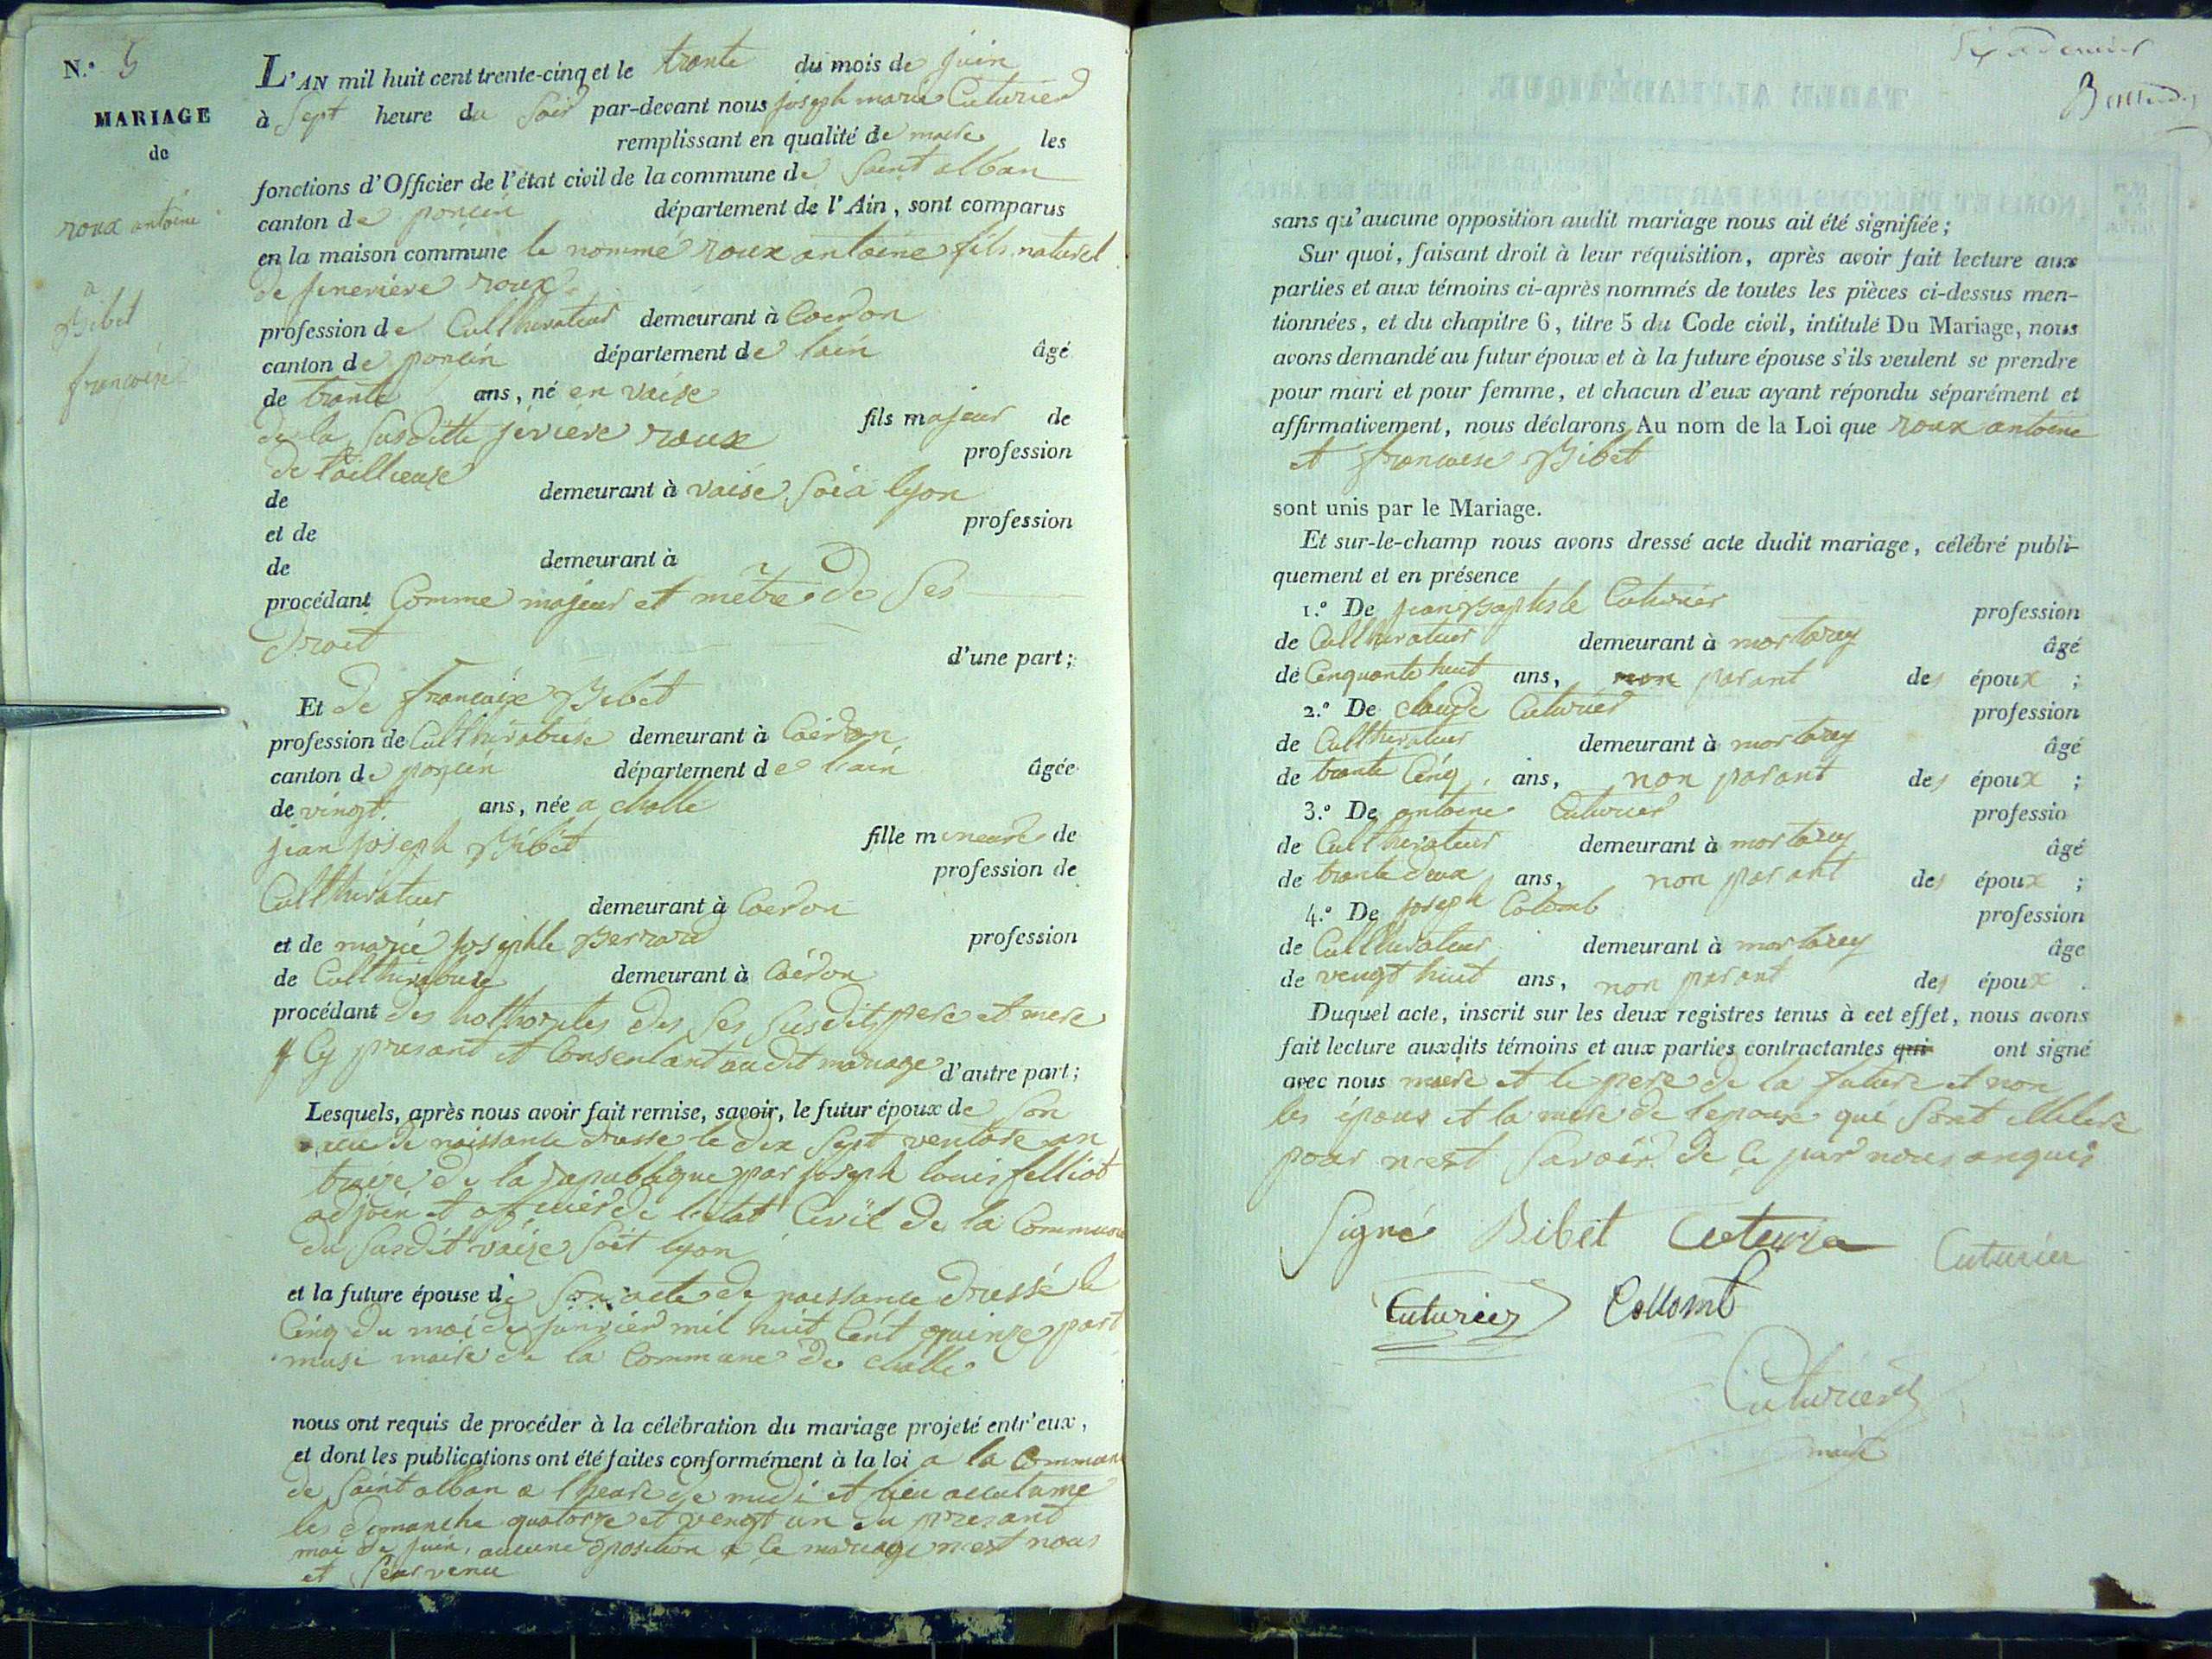 N.° 5
MARIAGE
de
roux antoine
a
Bibet
francoise
L'AN mil huit cent trente-cinq et le trante du mois de juin
à Sept heure du Soir par-devant nous joseph marie Cuturier
remplissant en qualité de maire les
fonctions d'Officier de l'état civil de la commune de Saint alban
canton de poncin département de l'Ain, sont comparus
en la maison commune le nommé roux antoine fils naturel
de jenevieve roux
profession de Culltivateur demeurant à Cerdon
canton de poncin département de lain âgé
de trante ans, né en vaise
fils majeur de
de la Susditte roux
profession
de taillieuse
de demeurant à vaise Soi a lyon
et de profession
de demeurant à
procédant Comme majeur et metre de Ses
Droit
d'une part;
Et de francoise Bibet
profession de demeurant à Cerdon
canton de poncin département de lain âgée
de vingt ans, née a challe
fille mineure de
jean joseph Bibet
profession de
Culltivateur demeurant à Cerdon
et de marie josephte Berrard profession
de demeurant à Cerdon
procédant des hothorites des Ses Susdits pere et mere
Cy presant et Consentant audit mariage d'autre part;
Lesquels, après nous avoir fait remise, savoir, le futur époux de Son
acte de naissance drasse le dix Sept ventose an
traize de la Republique par joseph louis felliot
adjoin et officier de letat Civil de la Commune
du Susdit vaize Soit lyon
et la future épouse de Son acte de naissance dressé le
Cinq du moi de janvier mil huit Cent quinze part
musi maire de la Commune de challe
nous ont requis de procéder à la célébration du mariage projeté entr'eux,
et dont les publications ont été faites conformément à la loi a la Commune
de Saint alban a lheure de midi et lieu acutume
les dimanche quatorze et vengt un du presant
moi de juin, aucune oposition a ce mariage n'est nous
et Survenu
sans qu'aucune opposition audit mariage nous ait été signifiée;
Sur quoi, faisant droit à leur réquisition, après avoir fait lecture aux
parties et aux témoins ci-après nommés de toutes les pièces ci-dessus men-
tionnées, et du chapitre 6, titre 5 du Code civil, intitulé Du Mariage, nous
avons demandé au futur époux et à la future épouse s'ils veulent se prendre
pour mari et pour femme, et chacun d'eux ayant répondu séparément et
affirmativement, nous déclarons Au nom de la Loi que roux antoine
et francoise Bibet
sont unis par le Mariage.
Et sur-le-champ nous avons dressé acte dudit mariage, célébré publi-
quement et en présence
1.° De jean Baptiste Cuturier profession
de Culltivateur demeurant à mortarey âgé
de Cinquante huit ans, non parant des époux ;
2.° De claude Cuturier profession
de Culltivateur demeurant à mortarey âgé
de trante Cinq ans, non parant des époux ;
3.° De antoine Cuturier professio
de Culltivateur demeurant à mortarey âgé
de trante deux ans, non parant des époux ;
4.° De joseph Colomb profession
de Culltivateur demeurant à mortarey âge
de vengt huit ans, non parant des époux .
Duquel acte, inscrit sur les deux registres tenus à cet effet, nous avons
fait lecture auxdits témoins et aux parties contractantes qui ont signé
avec nous maire et le pere de la future et non
les épous et la mere de lepouse qui Sont
pour n'est Savoir de Ce par nous anquis
Signé Bibet Cuturier Cuturier
Cuturier Collomb
Cuturier
maire